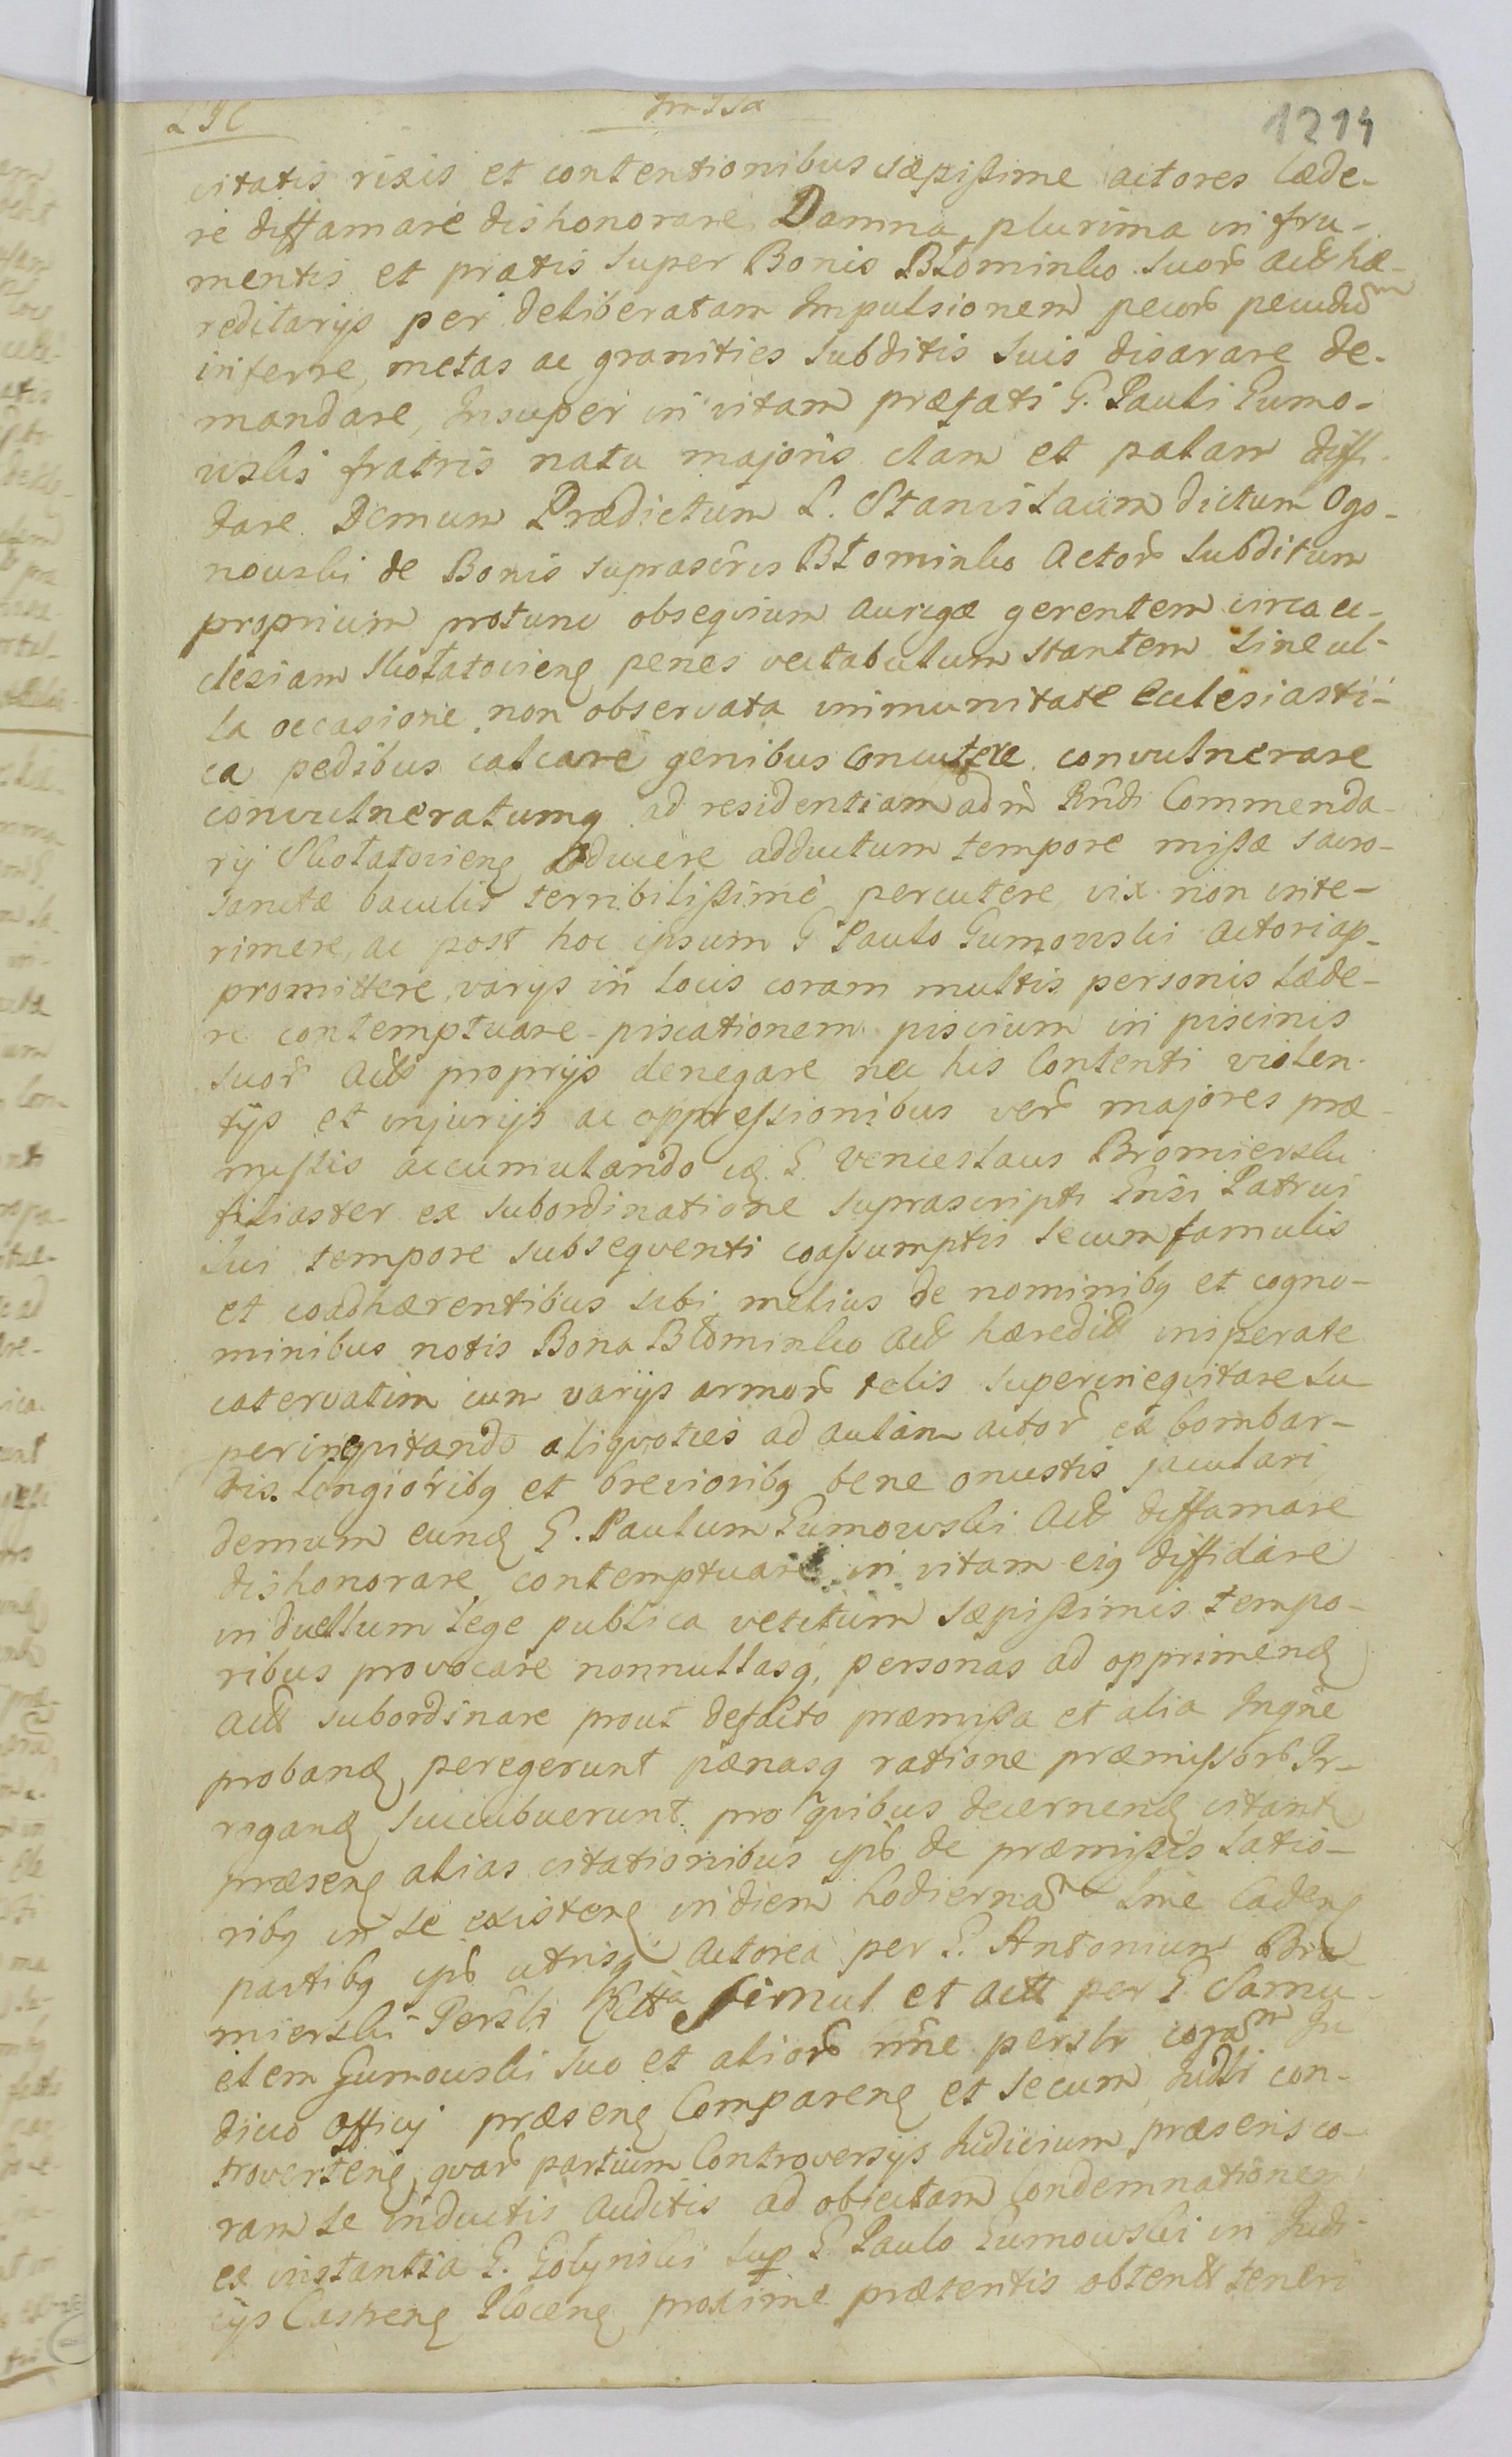 1214
citatis rixis et contentionibus sæpißime actores læde-
re diffamare dishonorare Damna plurima in fru-
mentis et pratis super Bonis Błominko suor Act hæ-
reditarijs per deliberatam Impulsionem pecor pecudum
inferre, metas ac granities subditis suis disarare de-
mandare, Insuper in vitam præfati G. Pauli Gumo-
wski fratris natu majoris clam et palam diffi-
dare. Demum Prædictum L. Stanislaum dictum Ogo-
nowski de Bonis suprascris Błominko Actor subditum
proprium protunc obsequium aurigæ gerentem circa ec-
clesiam Skołatovien penes vectabulum stantem sine ul-
la occasione non observata immunitate Ecclesiasti-
ca pedibus calcare genibus concutere convulnerare
convulneratumq ad residentiam adm Rndi Commenda-
rij Skołatovien adducere adductum tempore mißæ sacro-
sanctæ baculis terribilißime percutere vix non inte-
rimere, ac post hoc ipsum G Paulo Gumowski Actori ap-
promittere, varijs in locis coram multis personis læde-
re contemptuare piscationem piscium in piscinis
suor Act proprijs denegare nec his Contenti violen-
tijs et injurijs ac oppressionibus ver majores præ-
missis accumulando id G. Venceslaus Bromierski
filiaster ex subordinatione suprascripti Gnsi Patrui
sui tempore subsequenti coassumptis secum famulis
et coadhærentibus sibi melius de nominibq et cogno-
minibus notis Bona Błominko Act hæredit insperate
catervatim cum varijs armor telis superinequitare su
perinequitando aliquoties ad aulam actor ex bombar-
dis longioribq et brevioribq bene onustis jaculari
demum eund G. Paulum Gumowski Act diffamare
dishonorare contemptuare in vitam eiq diffidare
in duellum lege publica vetitum sæpißimis tempo-
ribus provocare nonnullasq personas ad opprimend
Act subordinare prout defacto præmißa et alia Inqne
proband peregerunt pænasq ratione præmissor Ir-
rogand succubuerunt pro quibus decernend citant
præsen alias citationibus ips de præmißis latio-
ribq in se existen in diem hodiernam sine caden
partibq ips utrisq Actorea per G. Antonium Bro
mierski Perslr simul et act per G Samu-
elem Gumowski suo et alior nne perslr coram Ju
dicio Officij præsen Comparen et secum Judlr con-
troverten, quar partium Controversijs Judicium præsens co-
ram se inductis auditis ad obiectam condemnationem
ex instantia G. Gołynski sup G. Paulo Gumowski in Judi-
cijs Castren Plocen proxime prætentis obtent teneri